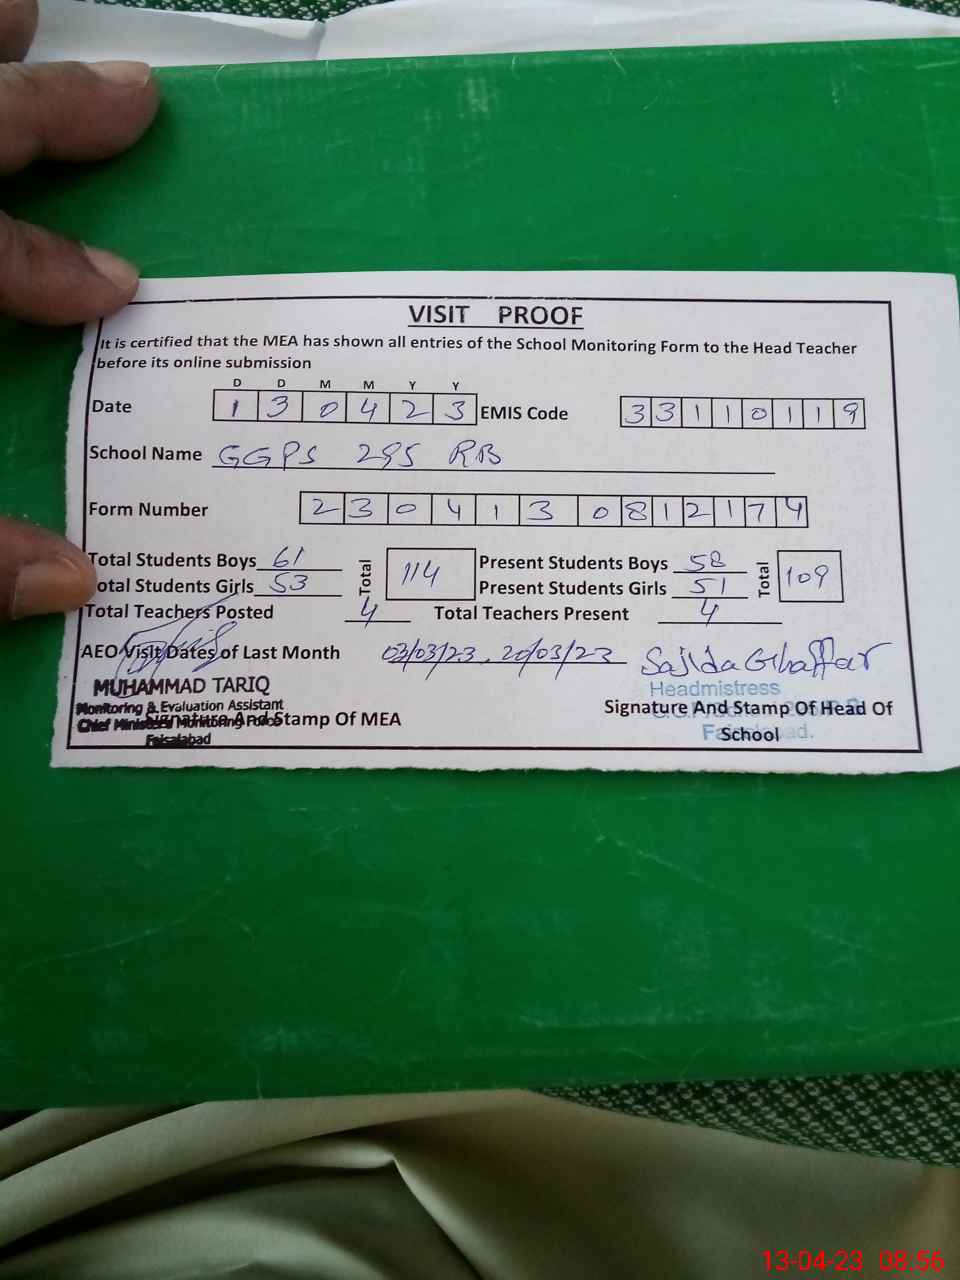 VISIT PROOF
It is certified that the MEA has shown all entries of the School Monitoring Form to the Head Teacher
before its online submission
D D M M Y Y
Date 1 3 0 4 2 3 EMIS Code 3 3 1 1 0 1 1 9
School Name GGPS 295 RB
Form Number 2 3 0 4 1 3 0 8 1 2 1 7 4
Total Students Boys 61 Total 114 Present Students Boys 58 Total 109
Total Students Girls 53 Present Students Girls 51
Total Teachers Posted 4 Total Teachers Present 4
AEO Visit Dates of Last Month 03/03/23, 20/03/23 Sajida Ghaffar
MUHAMMAD TARIQ Headmistress
Monitoring & Evaluation Assistant
Signature And Stamp Of MEA Signature And Stamp Of Head Of
Chief Minister's Monitoring Force
Faisalabad School
13-04-23 08:56